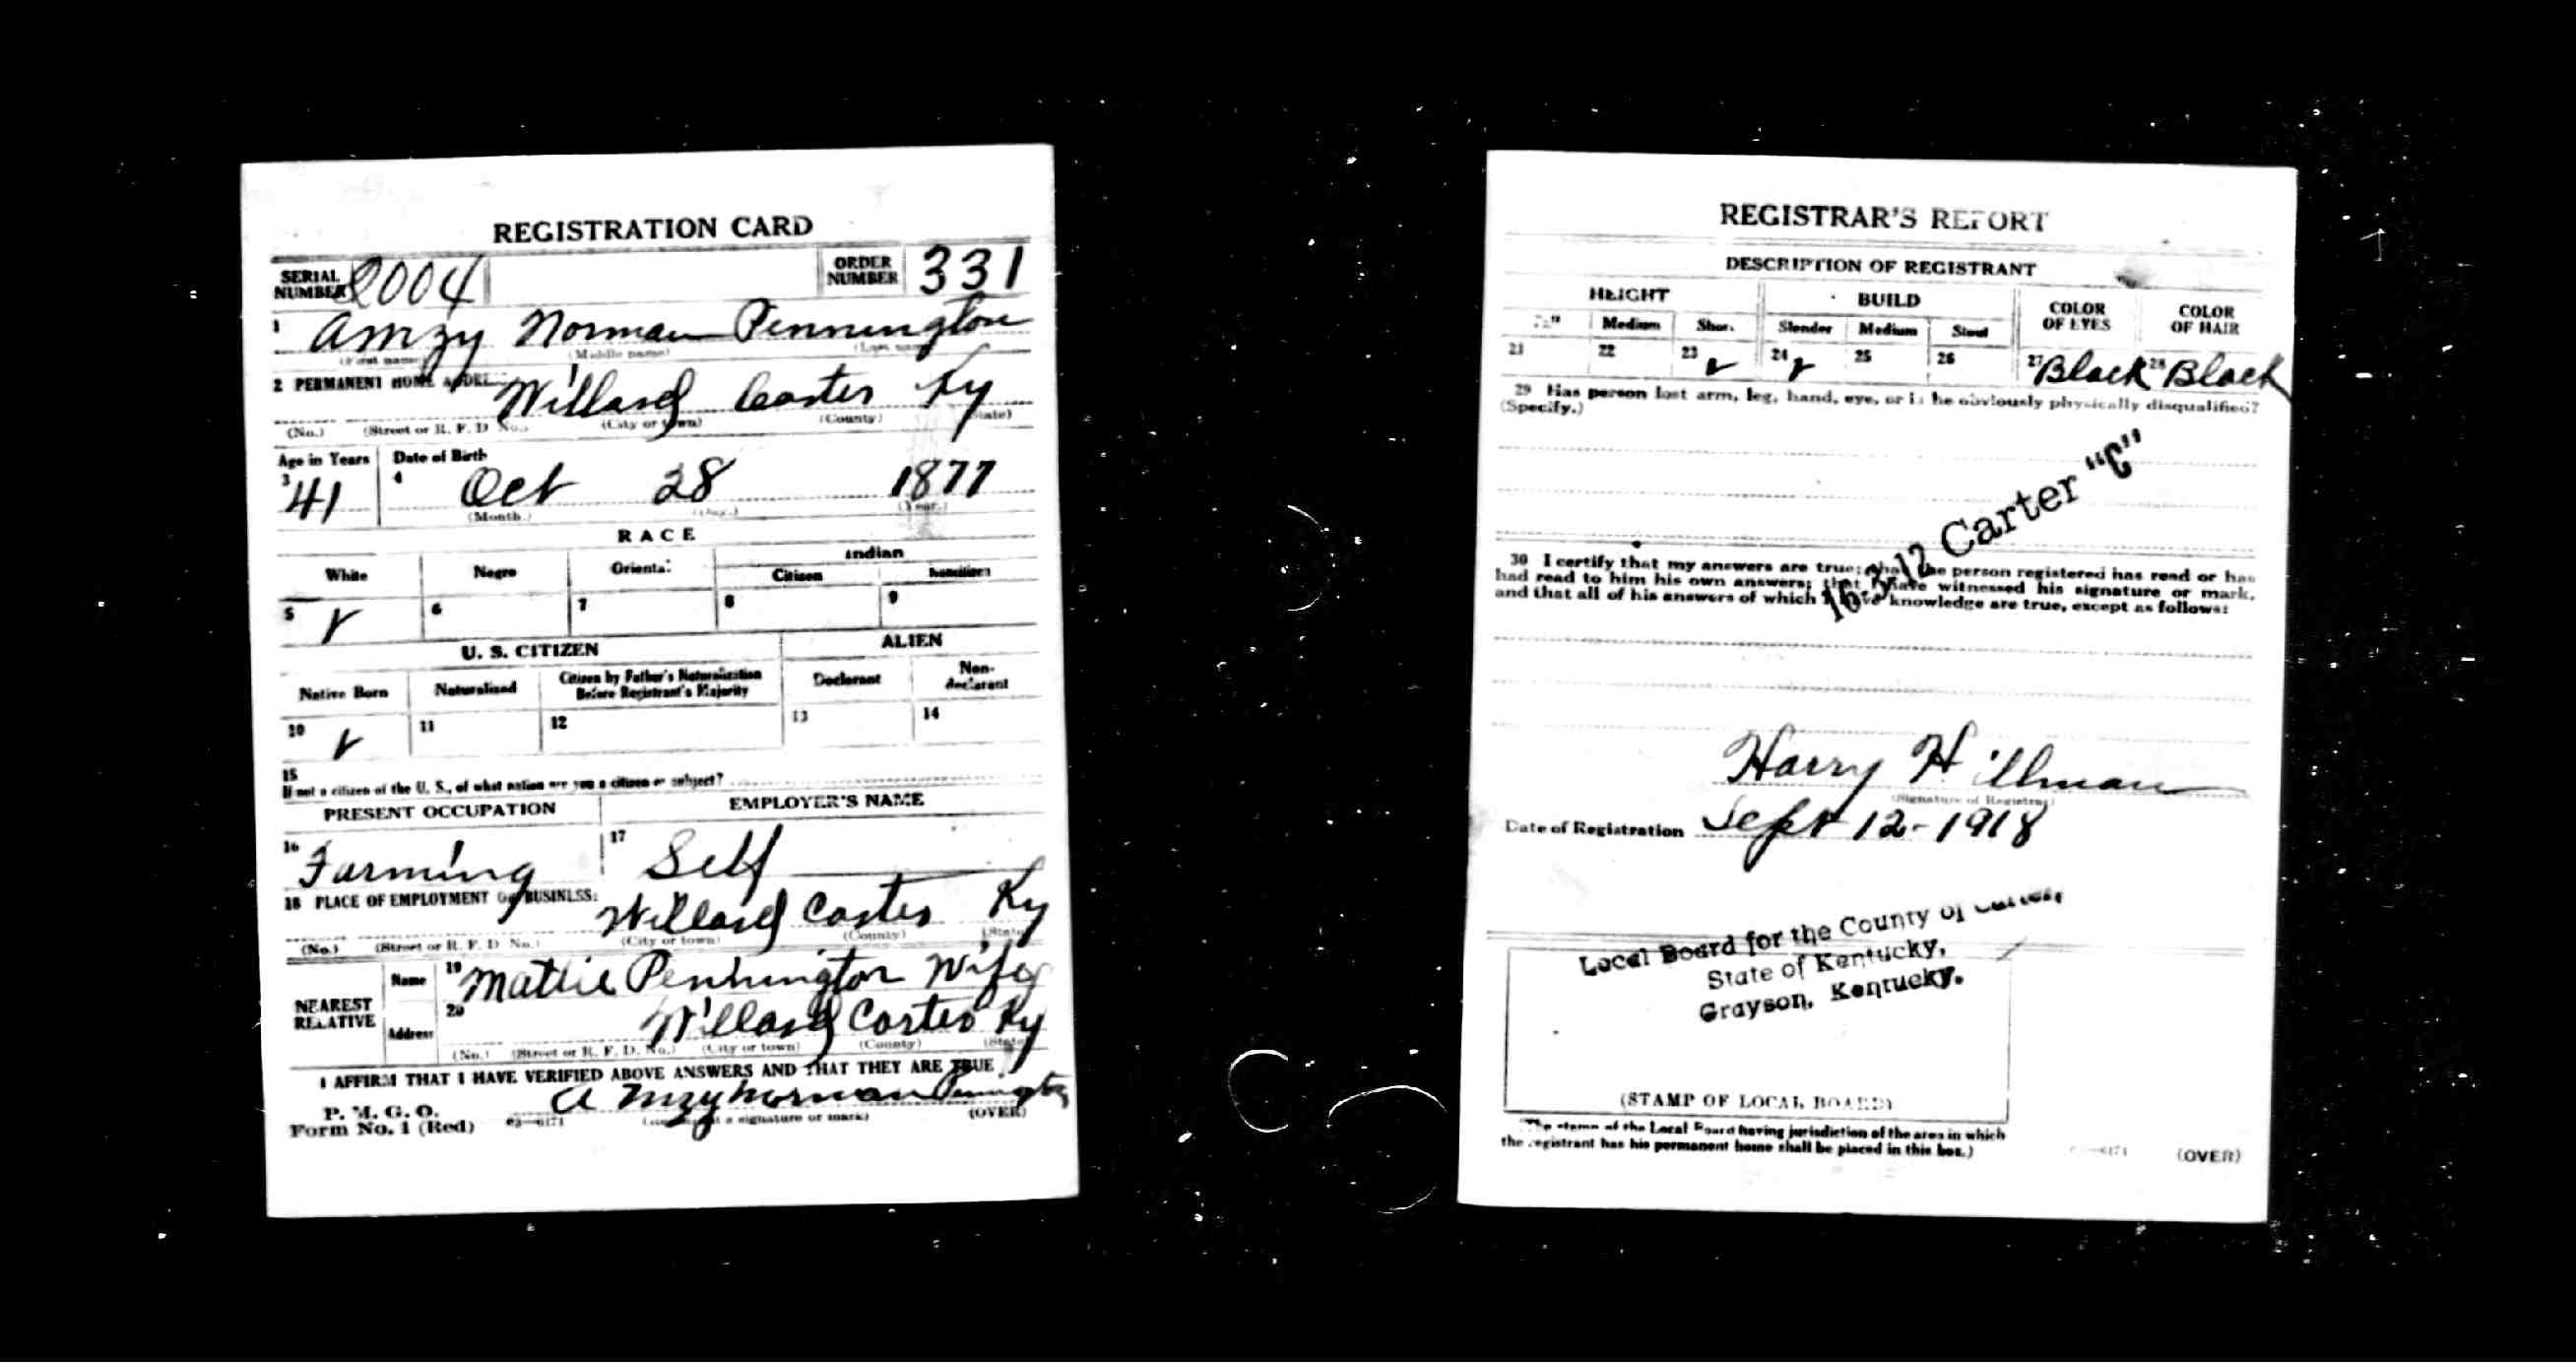 REGISTRATION CARD
SERIAL NUMBER 2004 ORDER NUMBER 331
1 Amzy Norman Pennington
(First name) (Middle name) (Last name)
2 PERMANENT HOME ADDRE Willard Carter Ky
(No.) (Street or R. F. D. No.) (City or town) (County) (State)
Age in Years Date of Birth
3 41 4 Oct 28 1877
(Month.) (Day.) (Year.)
RACE
White Negro Oriental Indian
Citizen Noncitizen
5 ✓ 6 7 8 9
U. S. CITIZEN ALIEN
Native Born Naturalized Citizen by Father's Naturalization Before Registrant's Majority Declarant Non-declarant
10 ✓ 11 12 13 14
15
If not a citizen of the U. S., of what nation are you a citizen or subject?
PRESENT OCCUPATION EMPLOYER'S NAME
16 Farming 17 Self
18 PLACE OF EMPLOYMENT OR BUSINESS:
Willard Carter Ky
(No.) (Street or R. F. D. No.) (City or town) (County) (State)
NEAREST RELATIVE Name 19 Mattie Pennington Wife
Address 20 Willard Carter Ky
(No.) (Street or R. F. D. No.) (City or town) (County) (State)
I AFFIRM THAT I HAVE VERIFIED ABOVE ANSWERS AND THAT THEY ARE TRUE
P. M. G. O.
Form No. 1 (Red) 03—6171 Amzy Norman Pennington
a signature or mark) (OVER)
REGISTRAR'S REPORT
DESCRIPTION OF REGISTRANT
HEIGHT BUILD COLOR OF EYES COLOR OF HAIR
Medium Short Slender Medium Stout
21 22 23 ✓ 24 ✓ 25 26 27 Black 28 Black
29 Has person lost arm, leg, hand, eye, or is he obviously physically disqualified?
(Specify.)
16-3-12 Carter "C"
30 I certify that my answers are true; that the person registered has read or has
had read to him his own answers; that I have witnessed his signature or mark,
and that all of his answers of which I have knowledge are true, except as follows:
Harry Hillman
(Signature of Registrar)
Date of Registration Sept 12-1918
Local Board for the County of Carter,
State of Kentucky,
Grayson, Kentucky.
(STAMP OF LOCAL BOARD)
(The stamp of the Local Board having jurisdiction of the area in which
the registrant has his permanent home shall be placed in this box.)
6171 (OVER)